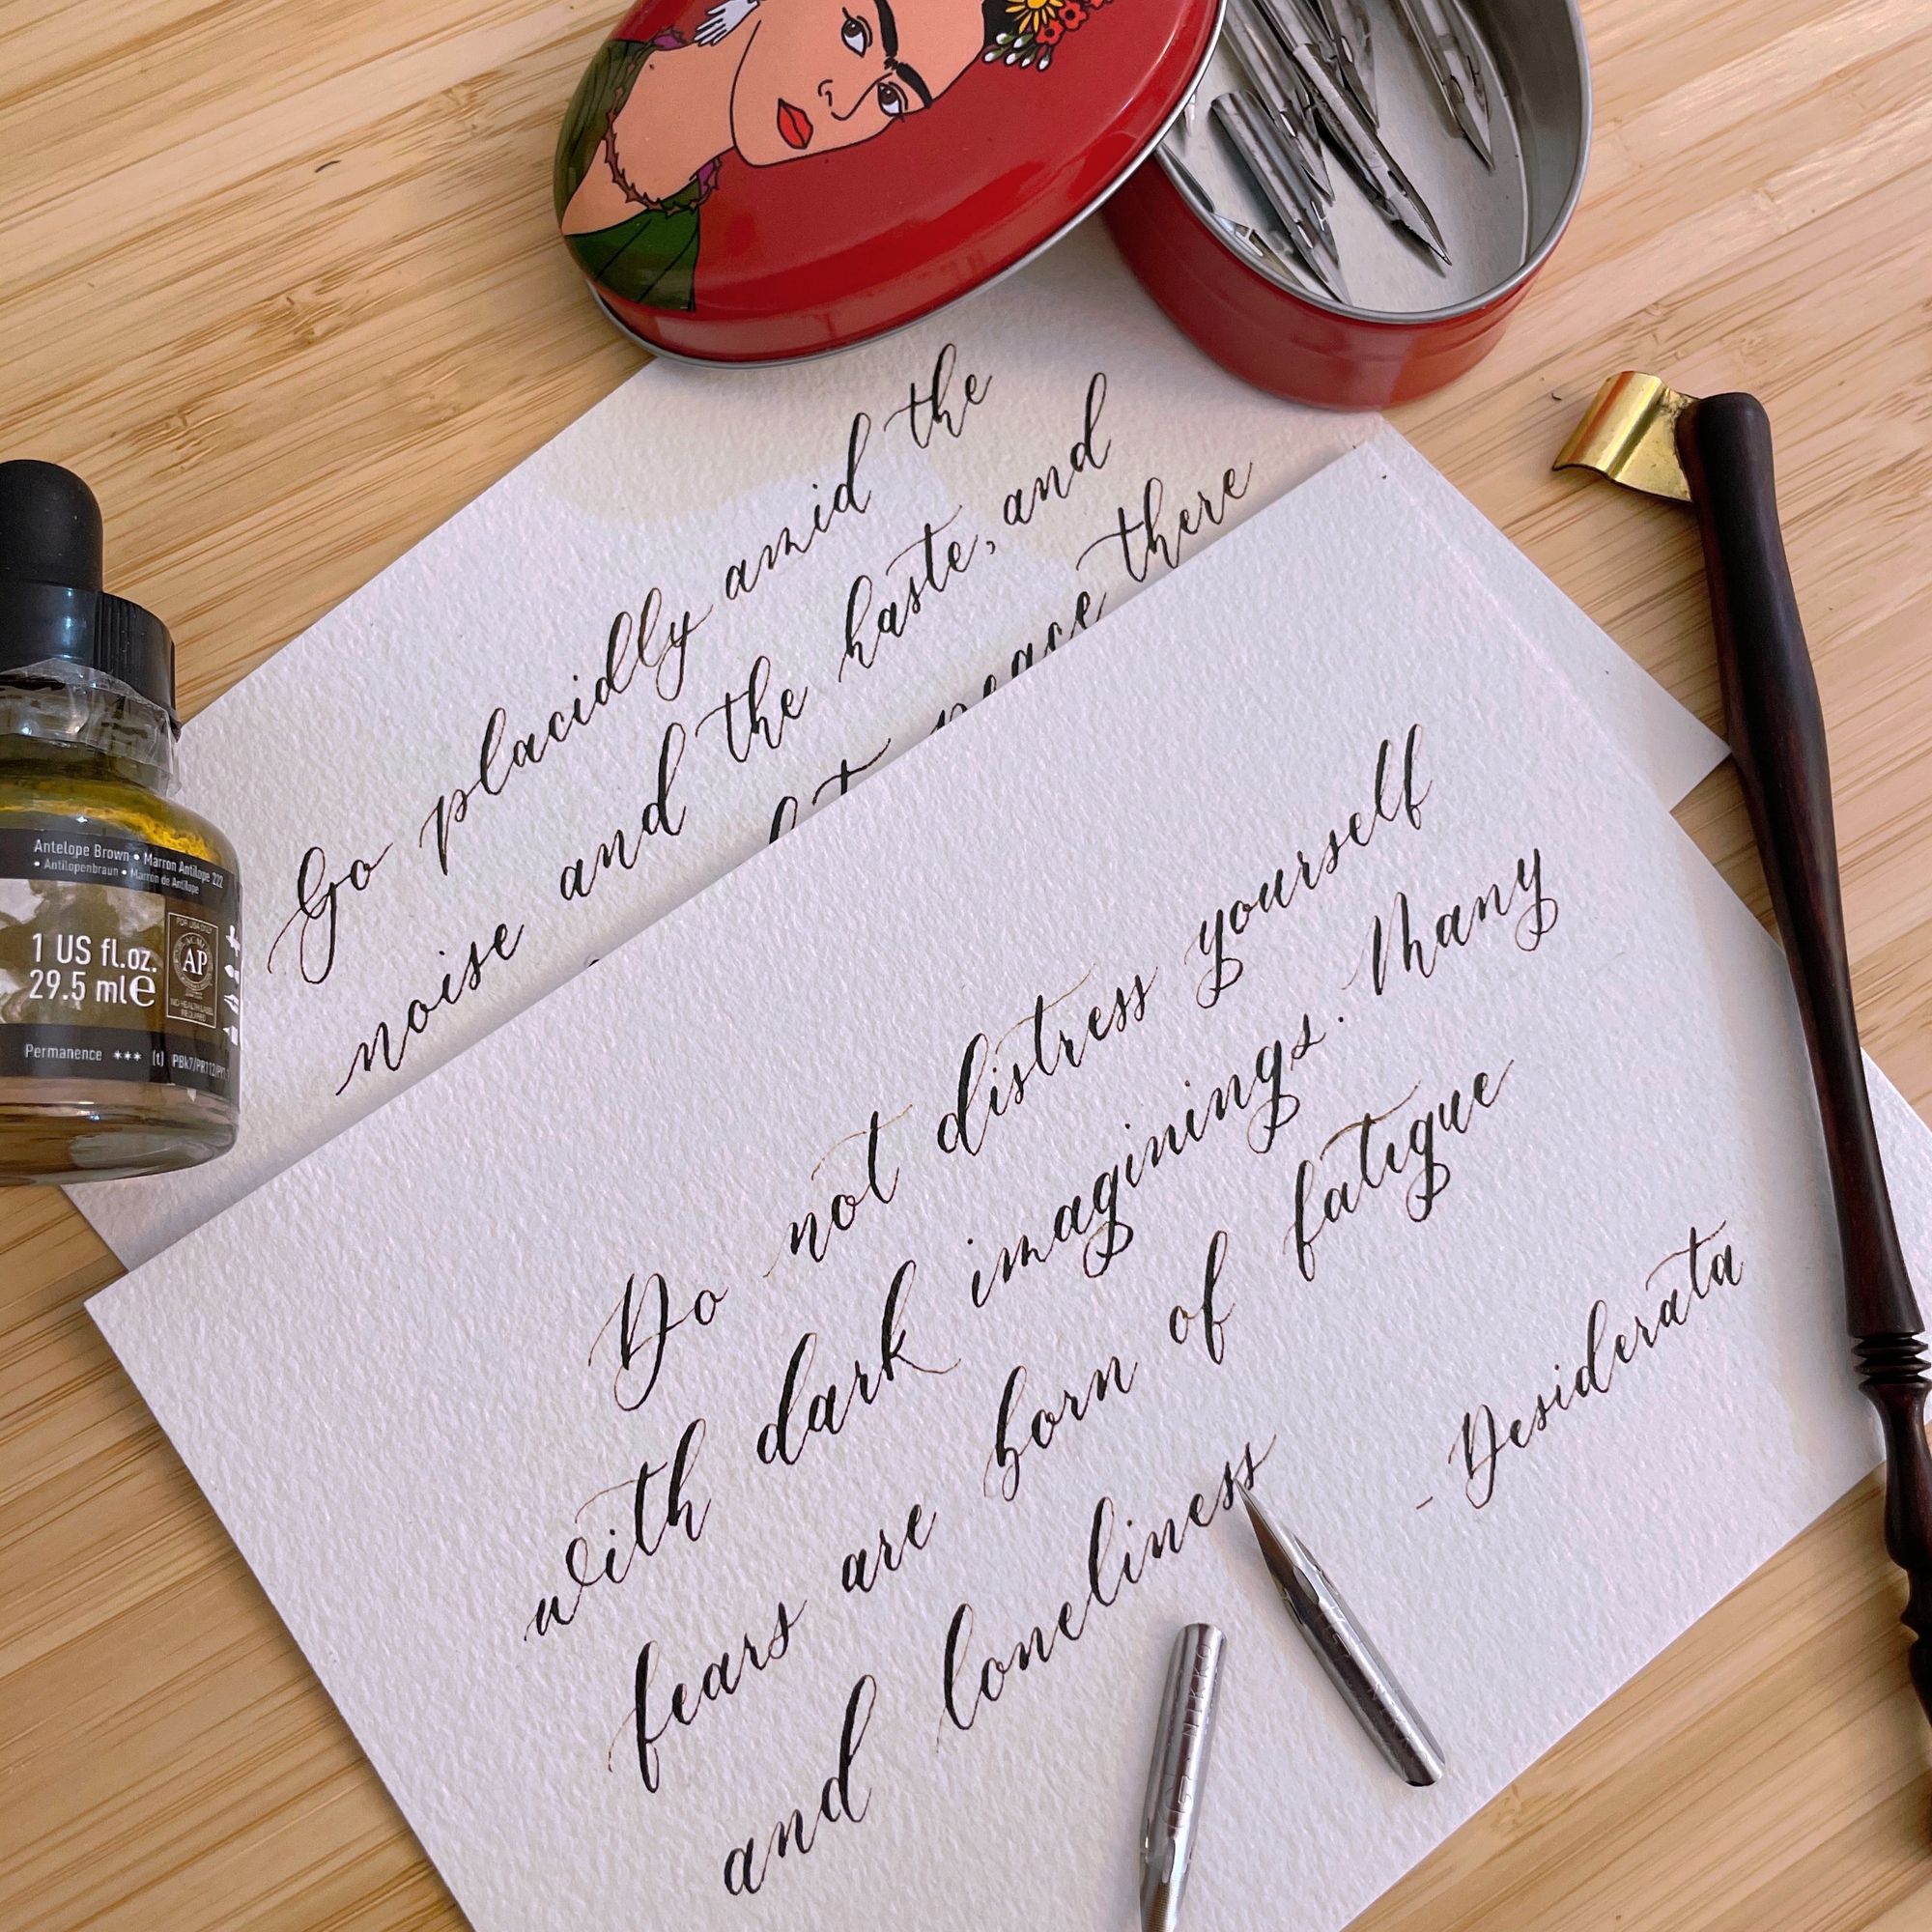 Go placidly amid the
noise and the haste, and
peace there
Do not distress yourself
with dark imaginings. Many
fears are born of fatigue
and loneliness
- Desiderata
Antelope Brown • Marron Antilope 222
• Antilopenbraun • Marrón de Antílope
1 US fl.oz.
29.5 ml e
AP
NO HEALTH LABEL
REQUIRED
Permanence *** (t) PBk7/PR112/PY1
NIKKO